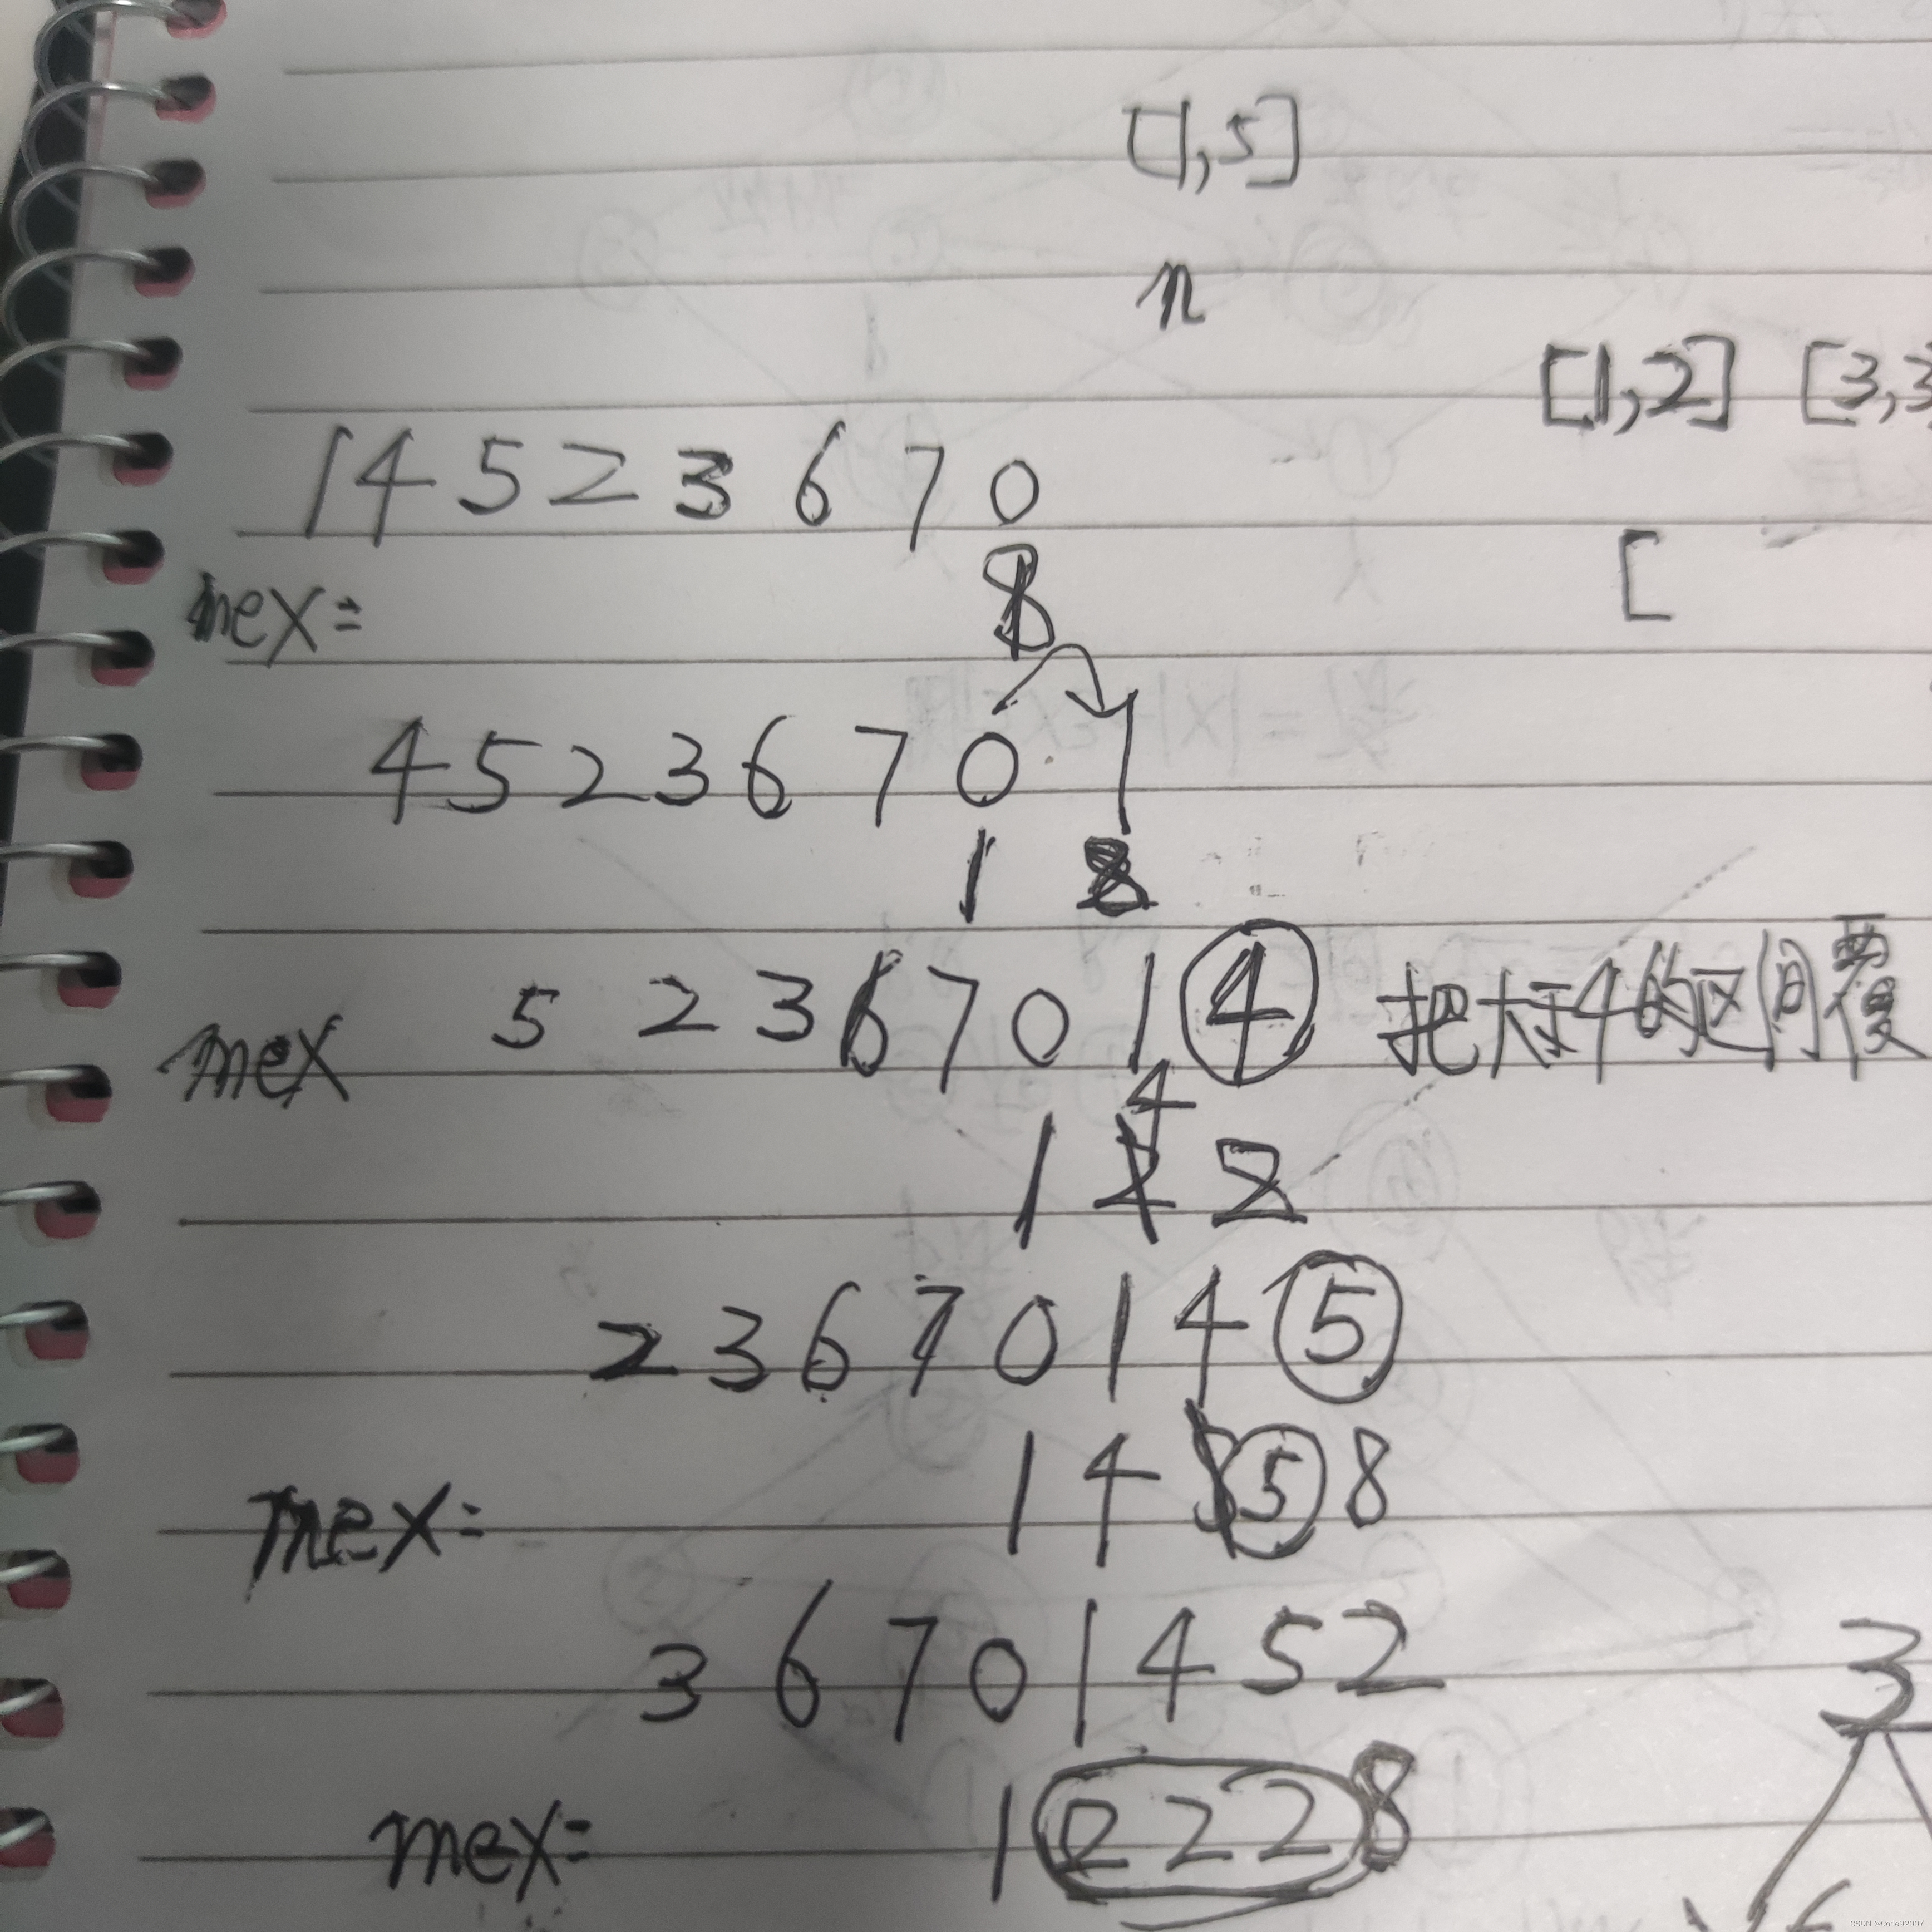 [1,5]
n
[1,2] [3,3
1 4 5 2 3 6 7 0
mex= 8
[
4 5 2 3 6 7 0 1
1 8
5 2 3 6 7 0 1 4 把大于4的区间覆
mex
4
1 8
2 3 6 7 0 1 4 5
mex= 1 4 5 8
3 6 7 0 1 4 5 2
3
mex= 1 2 2 2 8
6
CSDN @Code92007